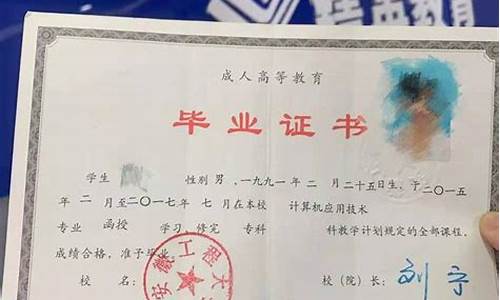 教育
成人高等教育
毕业证书
学生 性别 男，一九九一年 二 月 二十五日生，于二〇一五
年 二 月至二〇一七年 七 月在本校 计算机应用技术
专业 函授 学习，修完 专科 科教学计划规定的全部课程，
成绩合格，准予毕业。
校 名： 校（院）长： 刘宁
安徽工程大